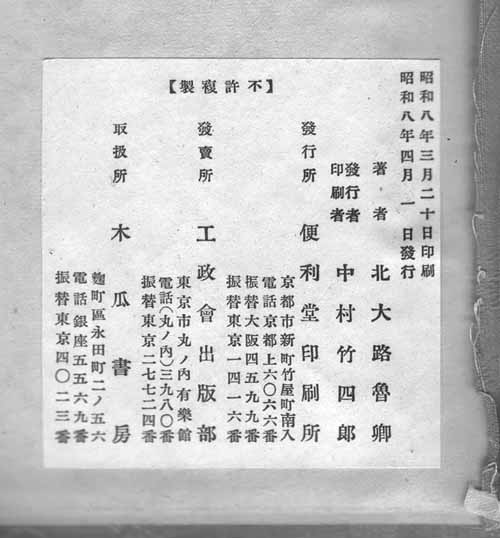 昭和八年三月二十日印刷
昭和八年四月一日發行
【不許複製】
著者 北大路魯卿
發行者
印刷者 中村竹四郎
發行所 便利堂印刷所
京都市新町竹屋町南入
電話京都上六〇六六番
振替大阪四五九九番
振替東京一四一六番
發賣所 工政會出版部
東京市丸ノ内有樂館
電話(丸ノ内)三九八〇番
振替東京二七七二四番
取扱所 木瓜書房
麹町區永田町二ノ五六
電話銀座五五六九番
振替東京四〇二三番